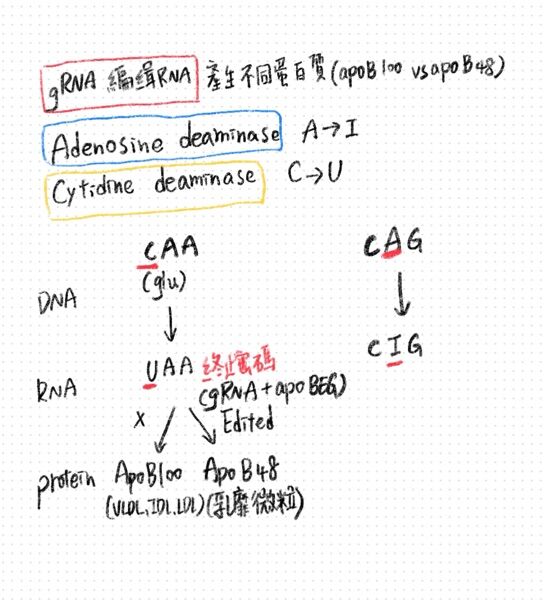 gRNA 編緝RNA 產生不同蛋白質(apoB100 vs apoB48)
Adenosine deaminase A→I
Cytidine deaminase C→U
CAA CAG
(glu)
DNA
CIG
RNA UAA 終止密碼
(gRNA+apoBEC)
X Edited
protein ApoB100 ApoB48
(VLDL,IDL,LDL) (乳靡微粒)